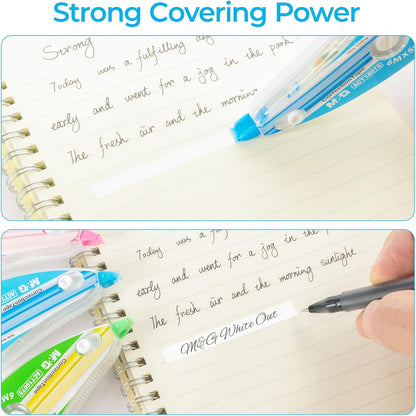 Strong Covering Power
Strong
Today was a fulfilling day
early and went for a jog in the park.
The fresh air and the mornin
M&G ACT18075 6M×5
Today was a
early and went for a jog in the
The fresh air and the morning sunlight
M&G White Out
M&G ACT18075
Correction Tape
M&G ACT18075
Correction Tape
6M